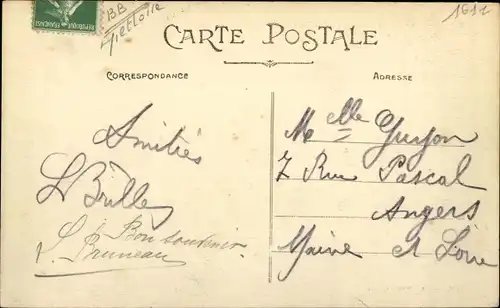 RÉPUBLIQUE FRANÇAISE
BB
1611
CARTE POSTALE
CORRESPONDANCE
ADRESSE
Amitiés
Bon souvenir
S. Bruneau
Mlle Guyon
7 Rue Pascal
Angers
Maine et Loire